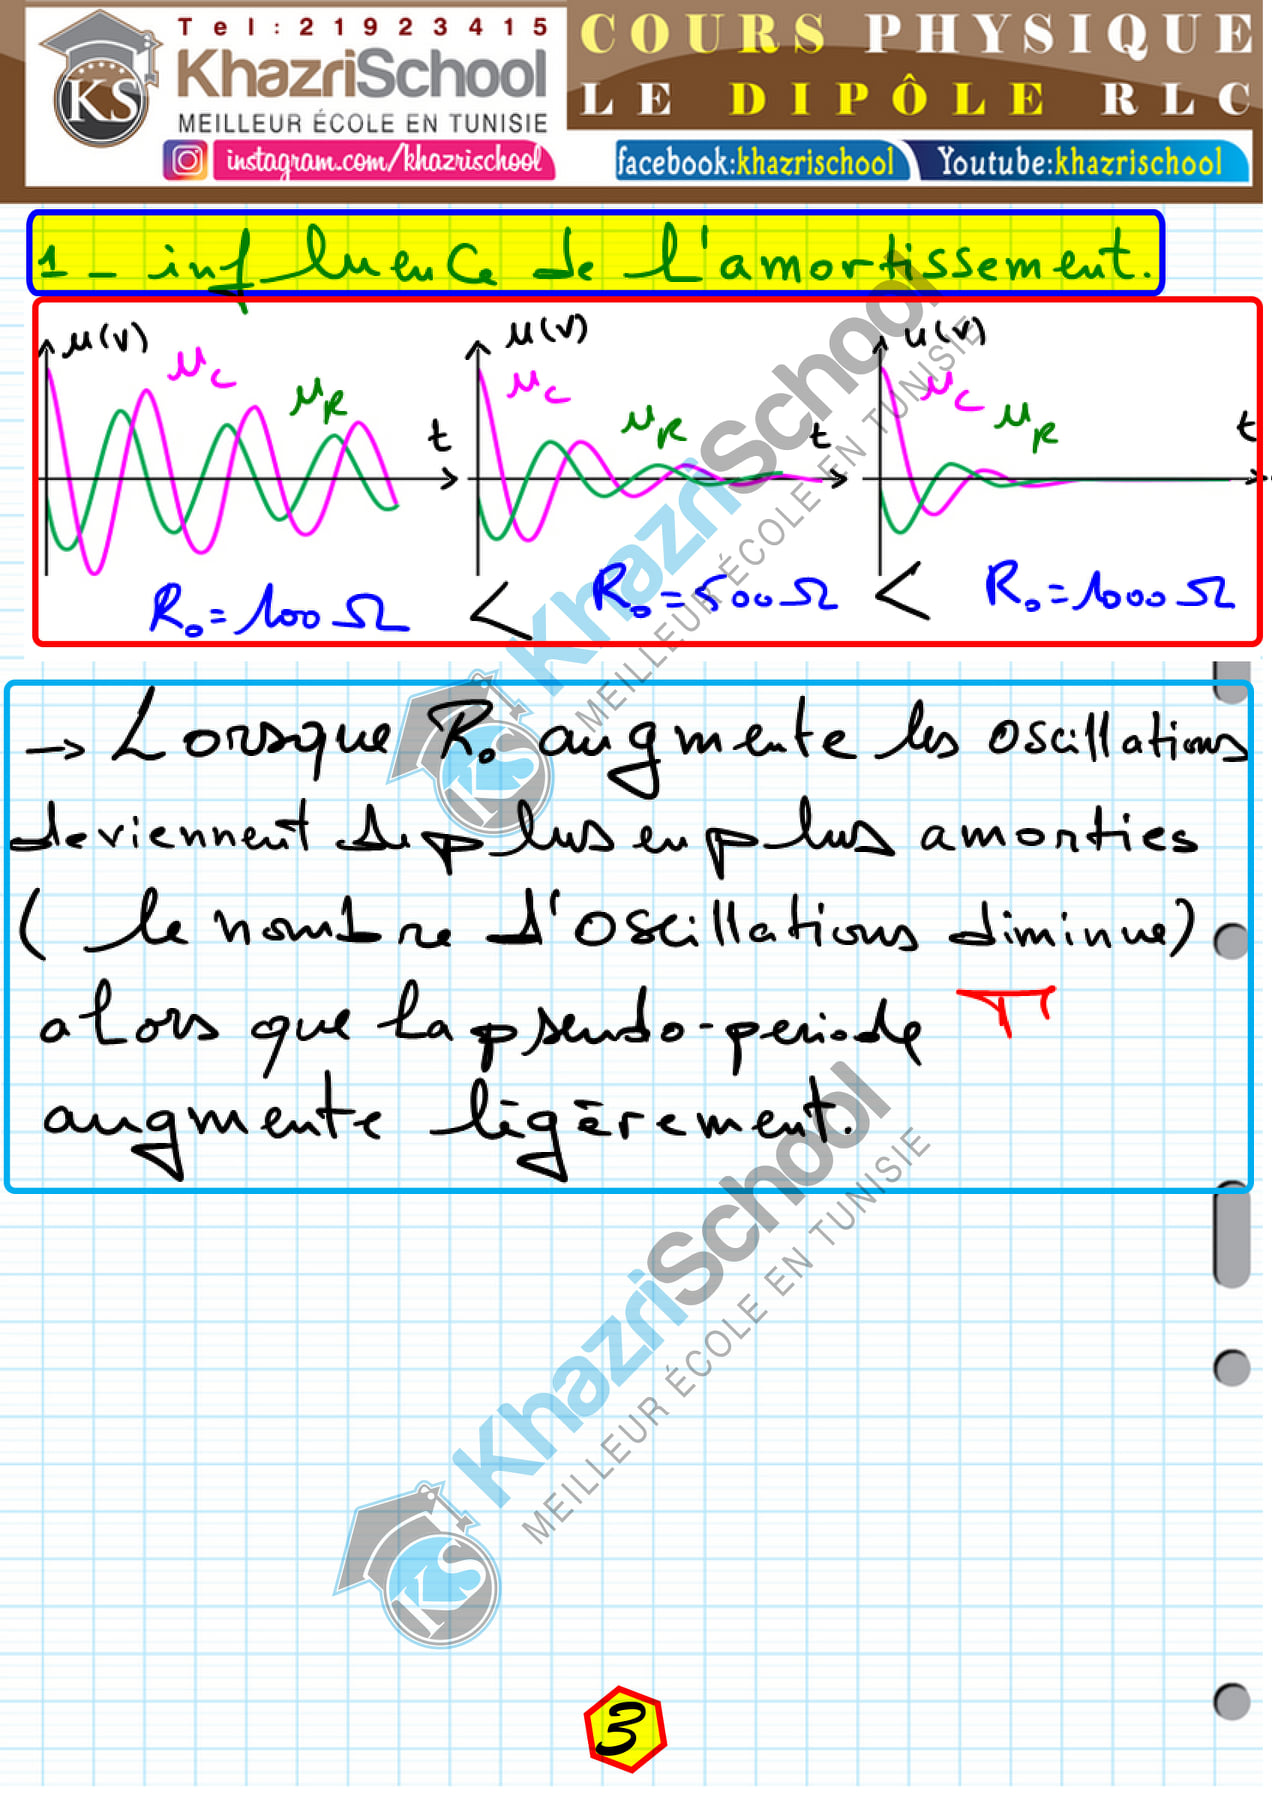 Tel: 21923415
KhazriSchool
MEILLEUR ÉCOLE EN TUNISIE
instagram.com/khazrischool
COURS PHYSIQUE
LE DIPÔLE RLC
facebook:khazrischool
Youtube:khazrischool
KS
1 - influence de l'amortissement.
u(V) uC uR t
u(V) uC uR t
u(V) uC uR t
R₀ = 100 Ω < R₀ = 500 Ω < R₀ = 1000 Ω
→ Lorsque R₀ augmente les oscillations
deviennent de plus en plus amorties
( le nombre d'oscillations diminue)
alors que la pseudo-periode T
augmente légèrement.
KhazriSchool
MEILLEUR ÉCOLE EN TUNISIE
KS
KhazriSchool
MEILLEUR ÉCOLE EN TUNISIE
KS
3